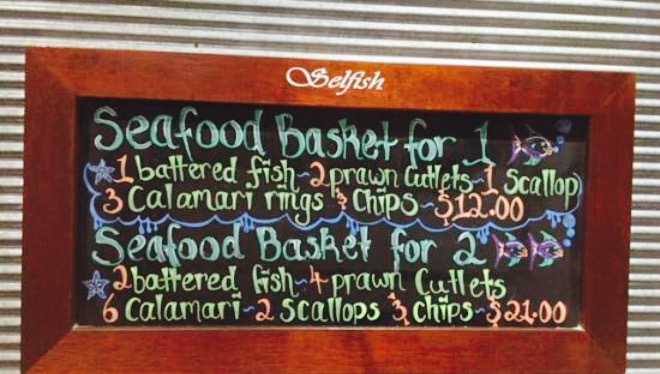 Selfish
Seafood Basket for 1
1 battered fish ~ 2 prawn Cutlets ~ 1 Scallop
3 Calamari rings & Chips ~ $12.00
Seafood Basket for 2
2 battered fish ~ 4 prawn Cutlets
6 Calamari ~ 2 Scallops & chips ~ $21.00